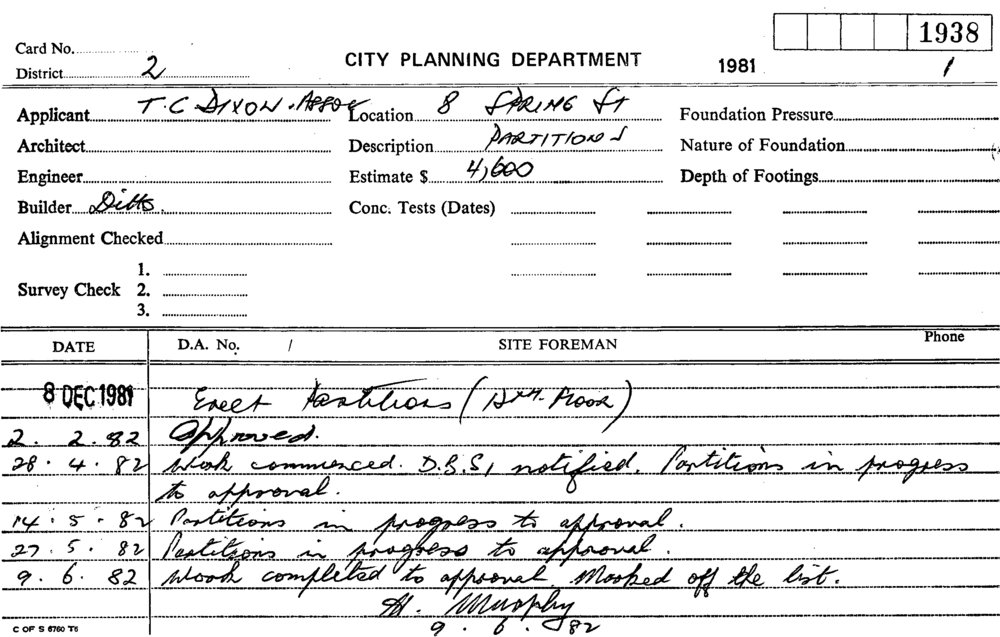 1938
Card No.
District 2
CITY PLANNING DEPARTMENT
1981 1
Applicant T. C DIXON. ASSOC Location 8 SPRING St Foundation Pressure
Architect Description PARTITIONS Nature of Foundation
Engineer Estimate $ 4,600 Depth of Footings
Builder Ditto. Conc. Tests (Dates)
Alignment Checked
1.
Survey Check 2.
3.
DATE D.A. No. / SITE FOREMAN Phone
8 DEC 1981 Erect Partitions (12th. Floor)
2. 2. 82 Approved.
28. 4. 82 Work commenced. D.B.S, notified. Partitions in progress
to approval.
14. 5. 82 Partitions in progress to approval.
27. 5. 82 Partitions in progress to approval.
9. 6. 82 Work completed to approval. Marked off the list.
H. Murphy
9. 6. 82
C OF S 6760 T6